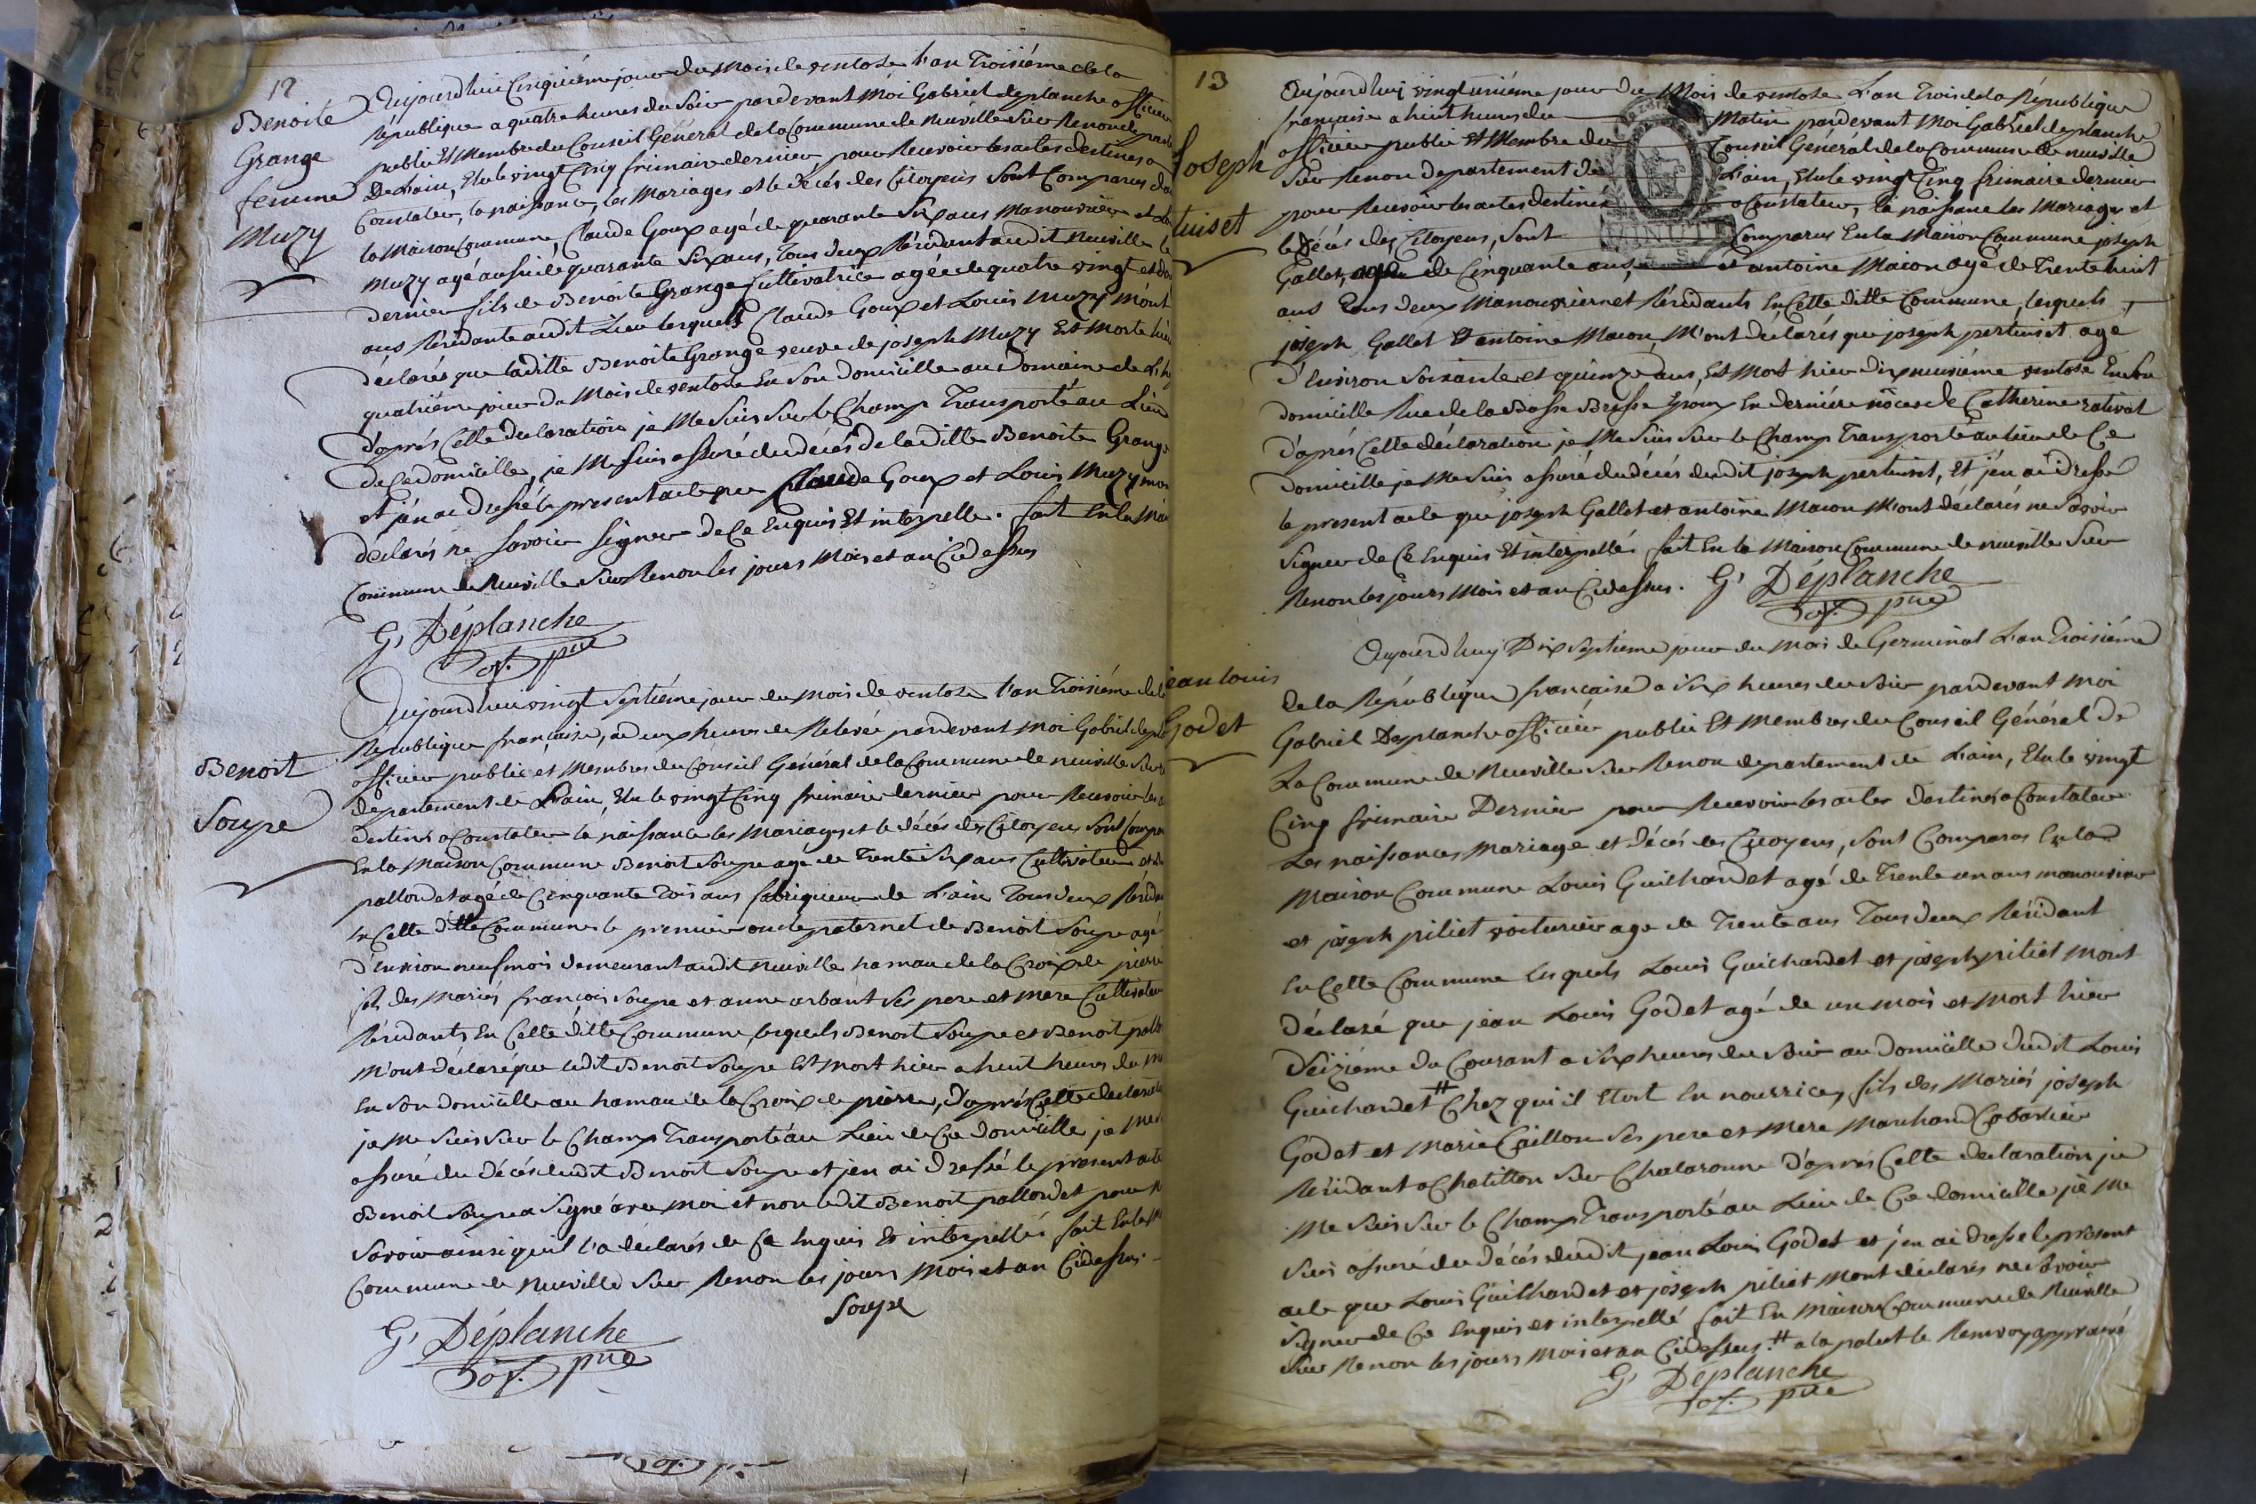 12
Benoite
Grange
femme
Muzy
Aujourdhui Cinquiéme jour du Mois de ventose l'an Troisiéme de la
République a quatre heures du Soir pardevant Moi Gabriel deplanche officier
public Et Membre du Conseil Général de la Commune de Neuville Sur Renon depart
De L'ain, Elu le vingt Cinq frimaire dernier, pour Recevoir les actes destinés a
Constater, la naissance, les Mariages et le décés des Citoyens Sont Comparus da
la Maison Commune, Claude Goux agé de quarante Six ans Manouvrier et
Muzy agé aussi de quarante Six ans, Tous deux Résidant audit Neuville le
dernier fils de Benoite Grange Cultivatrice agée de quatre vingt et
ans Résidante audit Lieu lesquels Claude Goux et Louis Muzy m'ont
déclarés que laditte Benoite Grange veuve de joseph Muzy Est Morte hier
quatriéme jour du Mois de ventose En Son domicille au Domaine de
d'aprés Cette déclaration je Me Suis Sur le Champ Transporté au Lieu
de Ce domicille, je M Suis assuré du décés de laditte Benoite Grange
et j'én ai Dressé le present acte que Claude Goux et Louis Muzy mon
déclarés ne Savoir Signer de Ce Enquis Et interpellé. fait En la Mai
Commune de Neuville Sur Renon les jours Mois et an Cidessus
G. Déplanche
of. pue
Benoit
Soupe
Aujourdhui vingt Septiéme jour du Mois de ventose l'an Troisiéme de la
République française, a deux heures de Relevée pardevant Moi Gabriel depl
officier public et Membres du Conseil Général de la Commune de neuville Sur
departement de L'ain, Elu le vingt Cinq frimaire dernier pour Recevoir les a
Destinés a Constater lé naissance les Mariages et le décés des Citoyens Sont Compar
En la Maison Commune Benoit Soupe agé de Trente Six ans Cultivateur et
pallordet agé de Cinquante Trois ans fabriqueur de Lain Tous deux Résidan
En Cette ditte Commune le premier oncle paternel de Benoit Soupe agé
d'environ neuf mois demeurant audit Neuville hamau de la Croix de pierre
fils des Mariés françois Soupe et anne arbant Ses pere et mere Cultivateur
Résidants En Cette ditte Commune, lesquels Benoit Soupe et Benoit pallor
M'ont déclaré que ledit Benoit Soupe Est Mort hier a huit heures du m
En Son domicille au hamau de la Croix de pierre, D'aprés Cette déclaratio
je Me Suis Sur le Champ Transporté au Lieu de Ce domicille je me
assuré du décés dudit Benoit Soupe et j'en ai Dressé le present acte
Benoit Soupe a Signé avec Moi et non ledit Benoit pallordet pour
Savoir ainsi qu'il l'a déclarés de Ce Enquis Et interpellés fait En la M
Commune de Neuville Sur Renon les jours Mois et an Cidessus.
Soupe
G. Déplanche
of. pue
13
Joseph
tuiset
Aujourdhuy vingt uniéme jour du Mois de ventose L'an Trois de la République
française a huit heures du Matin pardevant Moi Gabriel deplanche
officier public Et Membre du Conseil Général de la Commune de neuville
Sur Renon departement de L'ain, Elu le vingt Cinq frimaire dernier
pour Recevoir les actes destinés a Constater, la naissance les Mariages et
le Décés des Citoyens, Sont Comparus En la Maison Commune joseph
MINUTE
Gallet, agé de Cinquante ans, et antoine Maçon agé de Trente huit
ans Tous deux Manouvriers et Résidants En Cette ditte Commune, lesquels
joseph Gallet Et antoine Macon, M'ont déclarés que joseph pertuiset agé
d'Environ Soixante et quinze ans, Est Mort hier dix neuviéme ventose En Son
domicille Rue de la Basse Bresse Epoux En derniére nôces de Catherine rativat
d'aprés Cette déclaration je Me Suis Sur le Champ Transporté au lieu de Ce
domicille je Me Suis assuré du décés dudit joseph pertuiset, Et j'én ai dressé
le present acte que joseph Gallet et antoine Macon M'ont déclarés ne Savoir
Signer de Ce Enquis Et interpellés fait En la Maison Commune de neuville Sur
Renon les jours Mois et an Cidessus. G. Déplanche
of. pue
jean Louis
Godet
Aujourdhuy Dix Septieme jour du Mois de Germinal L'an Troisiéme
de la République française a Six heures du Soir pardevant Moi
Gabriel Deplanche officier public Et Membres du Conseil Général de
La Commune de Neuville Sur Renon departement de L'ain, Elu le vingt
Cinq frimaire Dernier pour Recevoir les actes Destinés a Constater
Les naissances Mariage et décés des Citoyens, Sont Comparus En la
Maison Commune Louis Guichardet agé de Trente un ans manouvrier
et joseph piliet voiturier age de Trente ans Tous deux Résidant
En Cette Commune lesquels Louis Guichardet et joseph piliet Mont
déclaré que jean Louis Godet agé de un mois et Mort hier
Seiziéme du Courant a Six heures du Soir au Domicille dudit Louis
Guichardet # Chez qui il Etoit En nourrice, fils des Mariés joseph
Godet et Marie Caillon Ses pere et Mere Marchand Cabartier
Résidant a Chatillon Sur Chalaronne D'aprés Cette déclaration je
Me Suis Sur le Champ Transporté au Lieu de Ce domicille je Me
Suis assuré du décés dudit jean Louis Godet et j'én ai dressé le présent
acte que Louis Guichardet et joseph piliet Mont déclarés ne Savoir
Signer de Ce Enquis et interpellé fait En Maison Commune de Neuville
Sur Renon les jours Mois et an Cidessus. # a la palut le Renvoy approuvé
G. Déplanche
of. pue